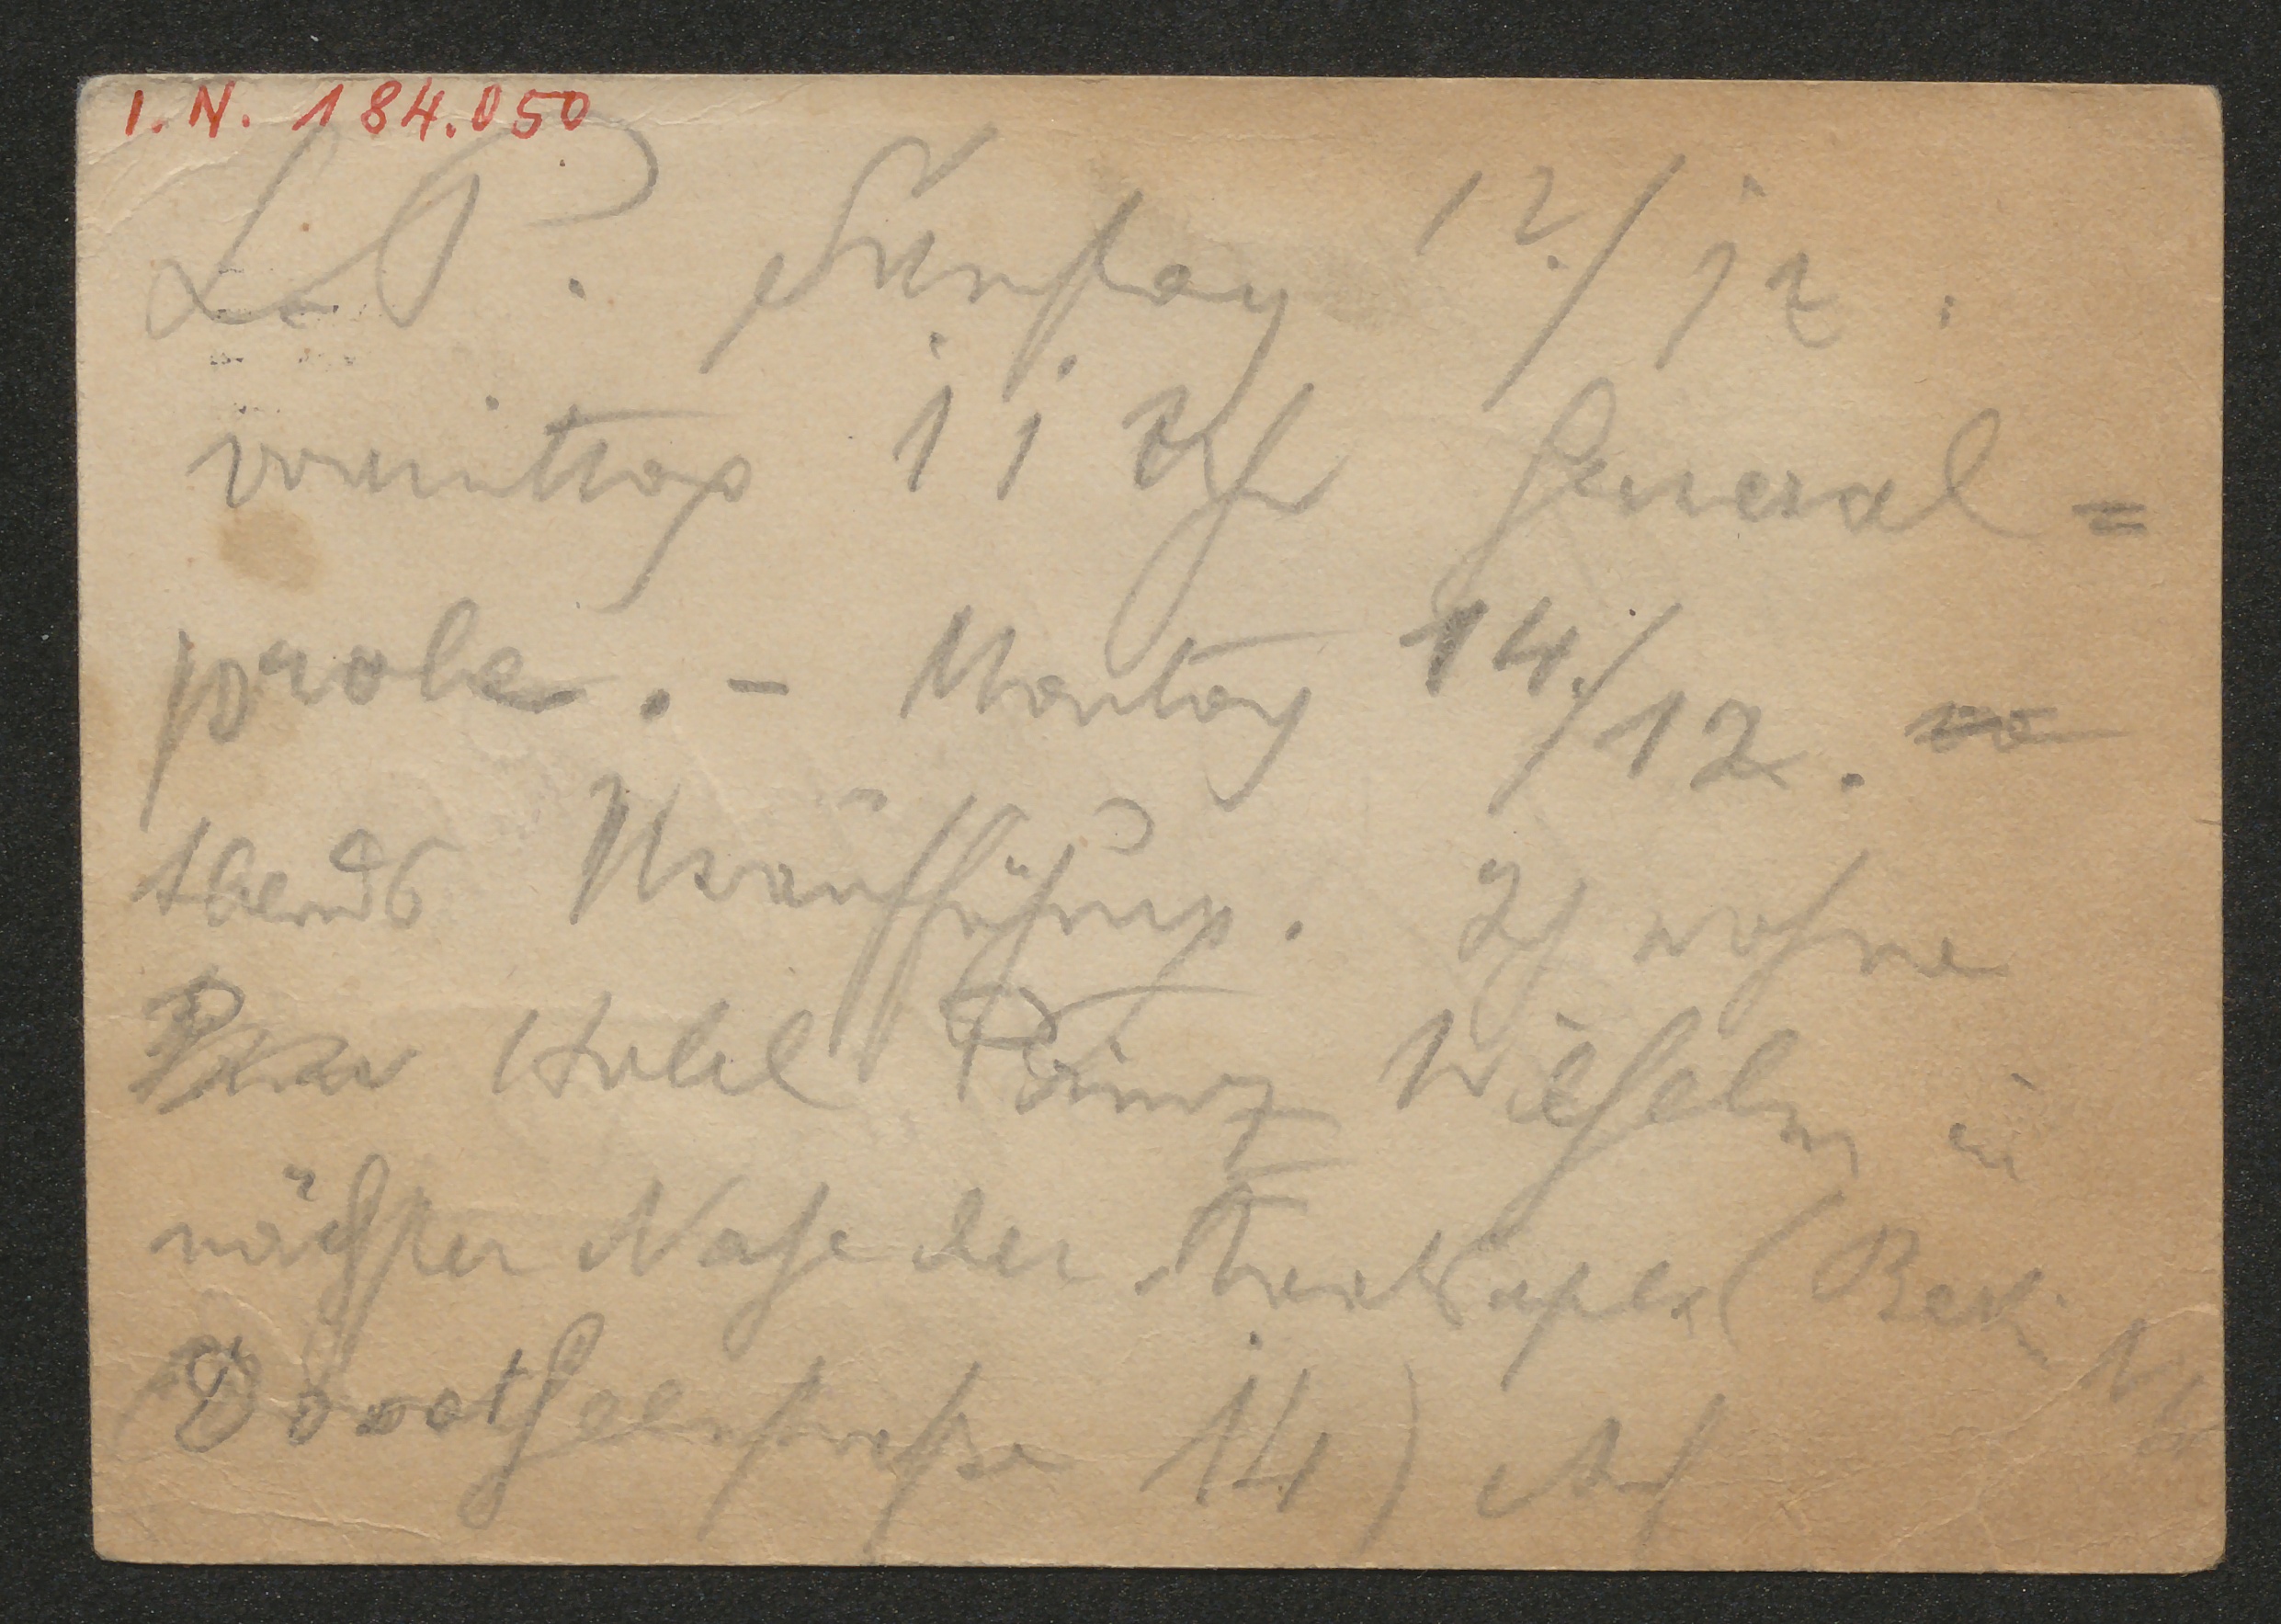 I. N. 184.050
L. P. Samstag 12./12.
vormittags 11 Uhr General=
probe. – Montag 14./12.
Abends Uraufführung. Ich wohne
Hotel Prinz Wilhelm in
nächster Nähe der (Berlin NW
Dorotheenstraße 14)